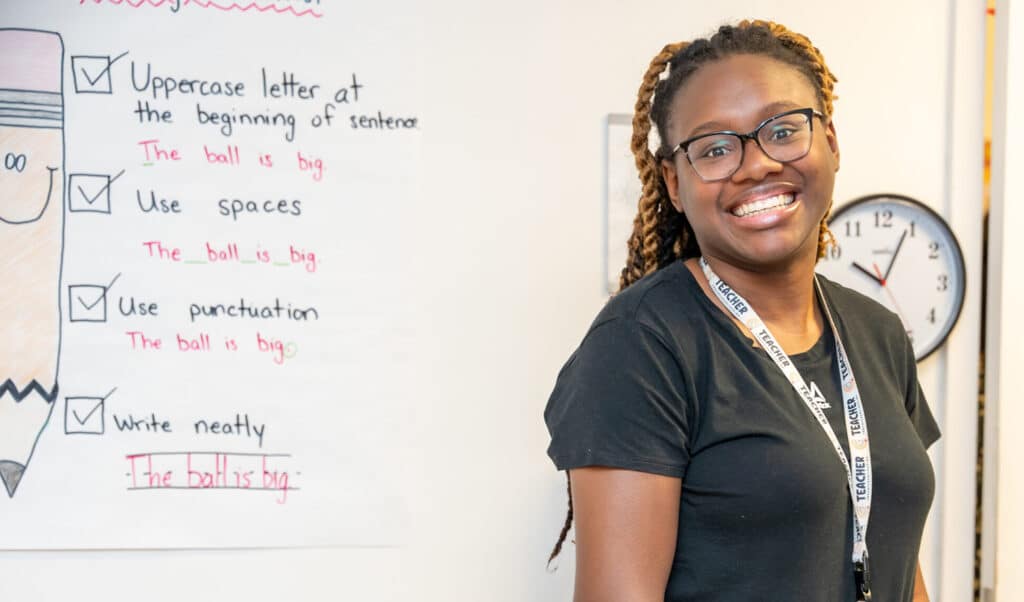 Uppercase letter at
the beginning of sentence
The ball is big.
Use spaces
The_ball_is_big.
Use punctuation
The ball is big.
Write neatly
The ball is big.
TEACHER
TEACHER
TEACHER
TEACHER
TEACHER
TEACHER
11 12 1
2
3
4